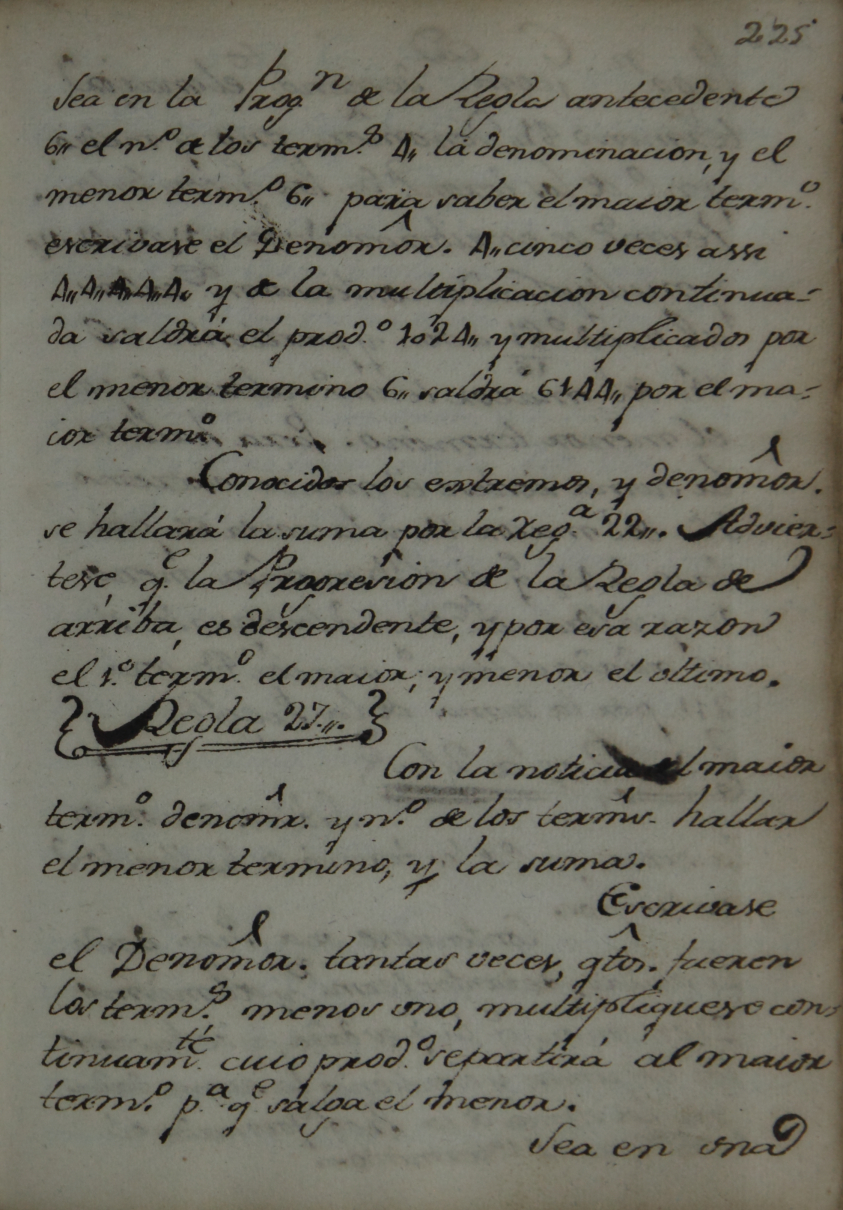 225
Sea en la Progn de la Regla antecedente
6,, el n.º de los term.s 4,, la denominacion, y el
menor term.º 6,, para saber el maior term.º
escrivase el Denomôr. 4,, cinco veces assi
4,, 4,, 4,, 4,, 4,, y de la multiplicacion continua-
da saldrá el prod.º 1024,, y multiplicados por
el menor termino 6,, saldrá 6144,, por el ma-
ior term.º
Conocidos los extremos, y denomôr.
se hallará la suma por la Reg.a 22,,. Advier-
tese, q.e la Progresion de la Regla de
arriba, es descendente, y por esa razon
el 1.º term.º el maior, y menor el ultimo.
Regla 27,,.
Con la noticia el maior
term.º denomîr. y n.º de los termîs. hallar
el menor termino, y la suma.
Escrivase
el Denomôr. tantas veces, qtôs. fueren
los term.s menos uno, multipliquese con-
tinuam.te cuio prod.º se partirá al maior
term.º p.a q.e salga el menor.
Sea en una